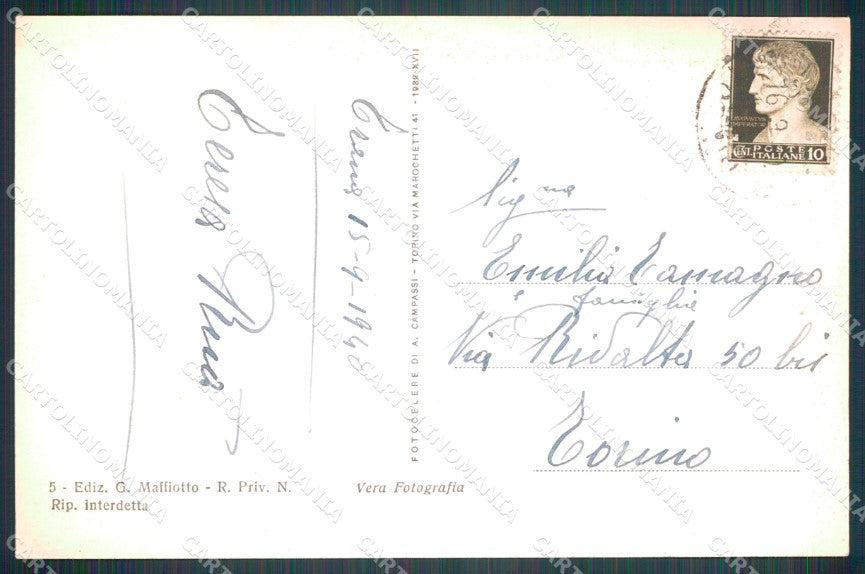 AVGVSTVS
IMPERATOR
CENT. POSTE ITALIANE 10
Sig.na
Emilia Tamagno
e famiglia
Via Rivalta 50 bis
Torino
15-9-1940
Teresa
FOTOCELERE DI A. CAMPASSI - TORINO VIA MAROCHETTI 41 - 1939-XVII
5 - Ediz. G. Maffiotto - R. Priv. N.
Rip. interdetta
Vera Fotografia
CARTOLINOMANIA